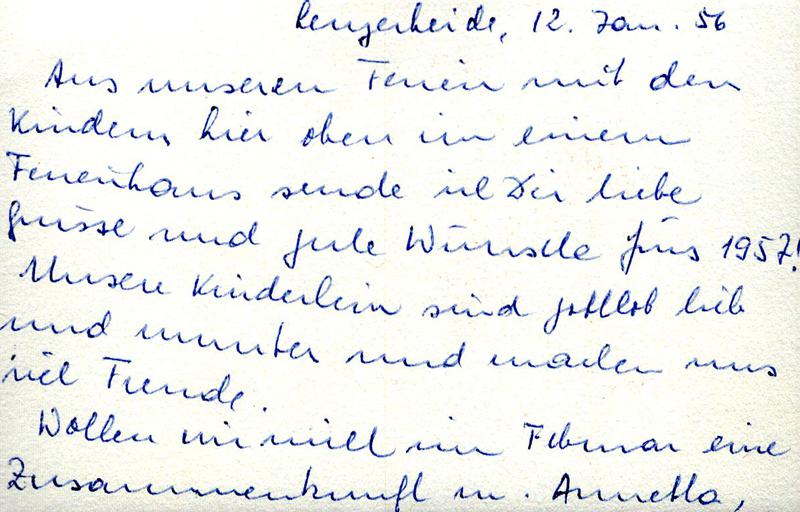 Lenzerheide, 12. Jan. 56
Aus unseren Ferien mit den
Kindern hier oben in einem
Ferienhaus sende ich Dir liebe
Grüsse und gute Wünsche fürs 1957!
Unsere Kinderlein sind gottlob lieb
und munter und machen uns
viel Freude.
Wollen wir nicht im Februar eine
Zusammenkunft m. Annetta,